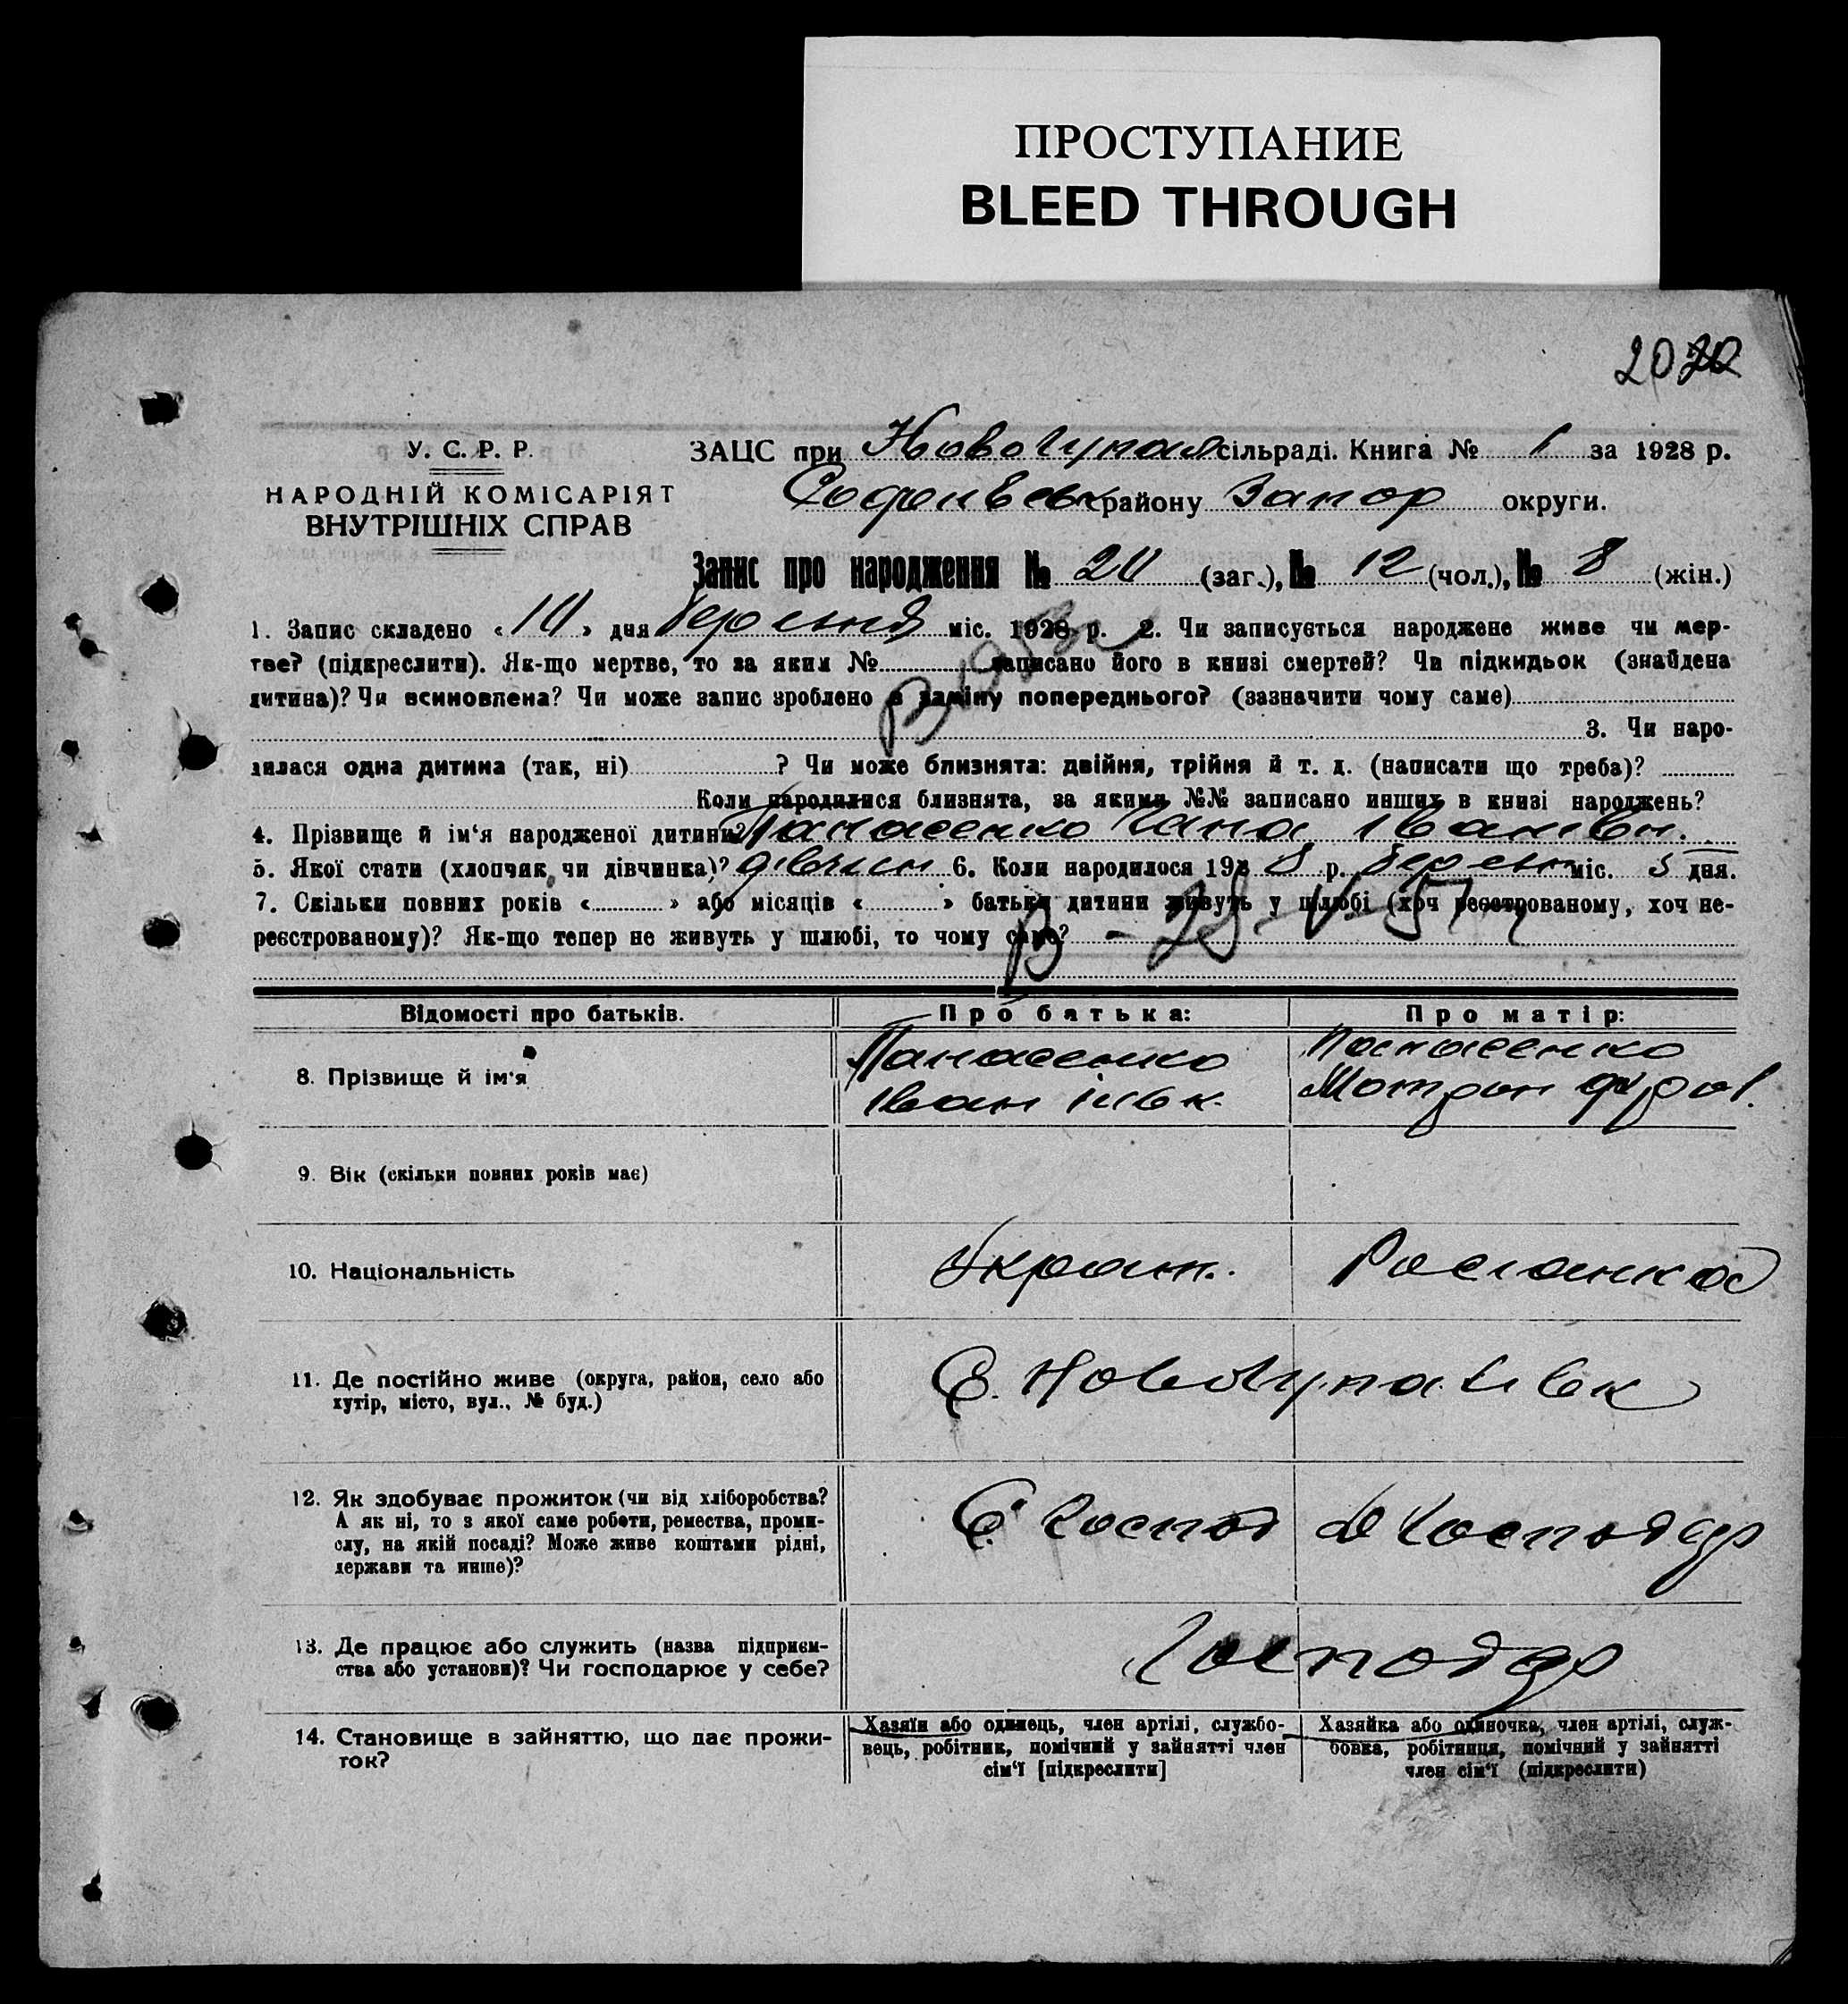 ПРОСТУПАНИЕ
BLEED THROUGH
20
У. С. Р. Р.
НАРОДНІЙ КОМІСАРІЯТ
ВНУТРІШНІХ СПРАВ
ЗАЦС при сільраді. Книга № 1 за 1928 р.
району Запор округи.
Запис про народження № (заг.), № 12 (чол.), № 8 (жін.)
1. Запис складено « » дня міс. 1928 р. 2. Чи записується народжене живе чи мер-
тве? (підкреслити). Як-що мертве, то за яким № записано його в книзі смертей? Чи підкидьок (знайдена
дитина)? Чи всиновлена? Чи може запис зроблено в заміну попереднього? (зазначити чому саме)
3. Чи наро-
дилася одна дитина (так, ні) ? Чи може близнята: двійня, трійня й т. д. (написати що треба)?
Коли народилися близнята, за якими №№ записано инших в книзі народжень?
4. Прізвище й ім‘я народженої дитини? Панасенко
5. Якої стати (хлопчик чи дівчинка)? дівчин 6. Коли народилося 192 8 р. міс. 5 дня.
7. Скільки повних років « » або місяців « » батьки дитини живуть у шлюбі (хоч реєстрованому, хоч не-
реєстрованому)? Як-що тепер не живуть у шлюбі, то чому саме?
Відомості про батьків. Про батька: Про матір:
8. Прізвище й ім‘я
Панасенко Панасенко
Іван Мотрон
9. Вік (скільки повних років має)
10. Національність Украін. Росіянка
11. Де постійно живе (округа, район, село або
хутір, місто, вул., № буд.)
12. Як здобуває прожиток (чи від хліборобства?
А як ні, то з якої саме роботи, ремества, проми-
слу, на якій посаді? Може живе коштами рідні,
держави та инше)?
13. Де працює або служить (назва підприєм-
ства або установи)? Чи господарює у себе?
Господар
14. Становище в зайняттю, що дає прожи-
ток?
Хазяїн або одинець, член артілі, службо-
вець, робітник, помічний у зайнятті член
сім‘ї [підкреслити]
Хазяйка або одиночка, член артілі, служ-
бовка, робітниця, помічний у зайнятті
член сім‘ї (підкреслити)